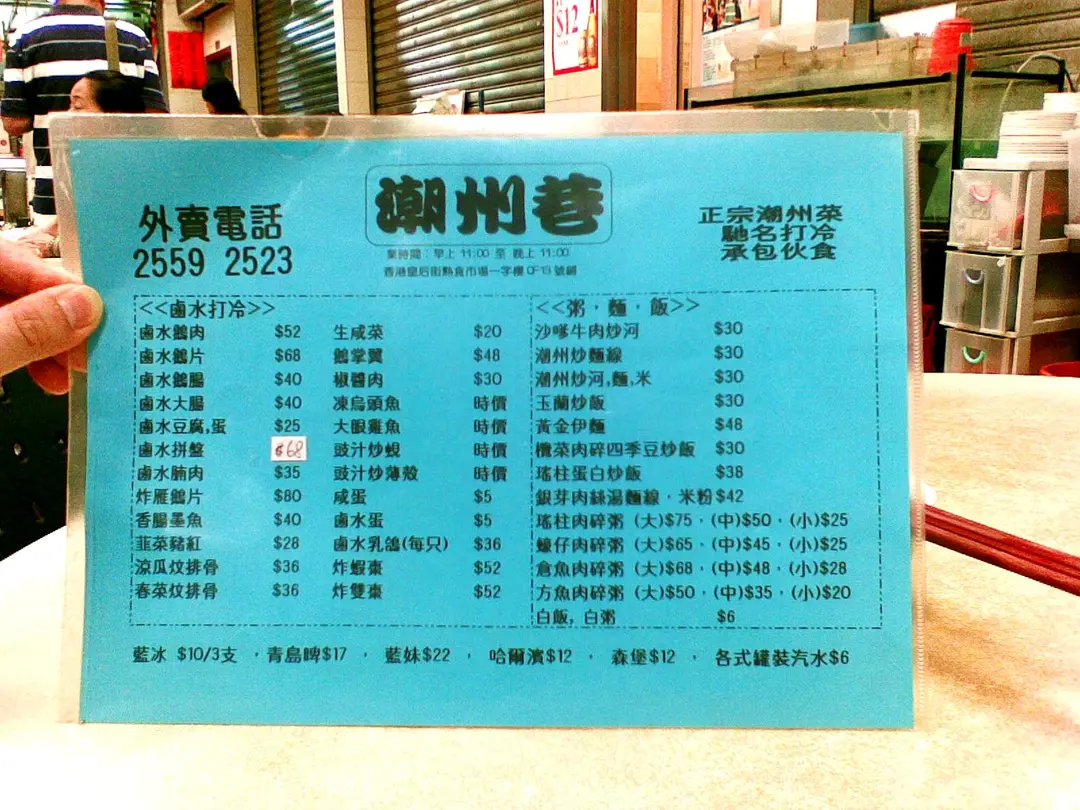 $12
外賣電話
2559 2523
潮州巷
業時間：早上 11:00 至 晚上 11:00
香港皇后街熟食市場一字樓 CF13 號舖
正宗潮州菜
馳名打冷
承包伙食
<<鹵水打冷>>
鹵水鵝肉 $52
鹵水鵝片 $68
鹵水鵝腸 $40
鹵水大腸 $40
鹵水豆腐,蛋 $25
鹵水拼盤 $68
鹵水腩肉 $35
炸雁鵝片 $80
香腸墨魚 $40
韮菜豬紅 $28
涼瓜炆排骨 $36
春菜炆排骨 $36
生咸菜 $20
鵝掌翼 $48
椒醬肉 $30
凍烏頭魚 時價
大眼雞魚 時價
豉汁炒蜆 時價
豉汁炒薄殼 時價
咸蛋 $5
鹵水蛋 $5
鹵水乳鴿(每只) $36
炸蝦棗 $52
炸雙棗 $52
<<粥，麵，飯>>
沙嗲牛肉炒河 $30
潮州炒麵線 $30
潮州炒河,麵,米 $30
玉蘭炒飯 $30
黃金伊麵 $48
欖菜肉碎四季豆炒飯 $30
瑤柱蛋白炒飯 $38
銀芽肉絲湯麵線，米粉 $42
瑤柱肉碎粥 (大)$75，(中)$50，(小)$25
蠔仔肉碎粥 (大)$65，(中)$45，(小)$25
倉魚肉碎粥 (大)$68，(中)$48，(小)$28
方魚肉碎粥 (大)$50，(中)$35，(小)$20
白飯, 白粥 $6
藍冰 $10/3支 ，青島啤$17 ， 藍妹$22 ， 哈爾濱$12 ， 森堡$12 ， 各式罐裝汽水$6